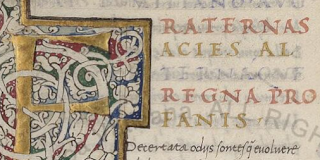 FRATERNAS
ACIES AL
TERNAQVE
REGNA PRO
FANIS
Decertata odijs sontesq; euoluere